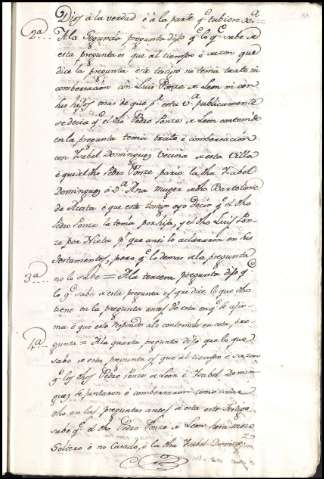 Dijos á la verdad é á la parte q.e tubiere Just.a
2.a A la Segunda pregunta Dijo q.e lo q.e save de
esta pregunta es que al tiempo é sazon que
dice la pregunta este testigo no tenia trato ni
combersacion con Luis Ponce de Leon ni con
his hijos mas de que p.r esta v.a publicamente
se decia q.e el dho Pedro Ponce de Leon contenido
en la pregunta tenia trato é combersacion
con Isabel Dominguez Vecina de esta Villa
é que el dho Pedro Ponce pario la dha Isabel
Dominguez á D.a Ana muger de dho Bartolome
de Alcala é que este testigo oyo decir q.e el dho
Pedro Ponce la tenia por hija, y el dho Luis Pon
ce por Nieta p.r que ansi lo aclararon en his
testamentos, pero q.e lo demas de la pregunta
no lo sabe =
3.a A la tercera pregunta dijo q.e
lo q.e sabe de esta pregunta es que dice lo que dho
tiene en la pregunta antes de esta en q.e se afir
ma é que esto responde á lo contenido en esta pre
gunta =
4.a A la quarta pregunta dijo que lo que
sabe de esta pregunta es que al tiempo é sazon
q.e los dhos Pedro Ponce de Leon é Isabel Domin
guez se juntaron é combersaron como tiene
dho en las preguntas antes de esta este testigo
sabe q.e el dho Pedro Ponce de Leon hera mozo
Soltero é no Casado, é la dha Isabel Doming.z